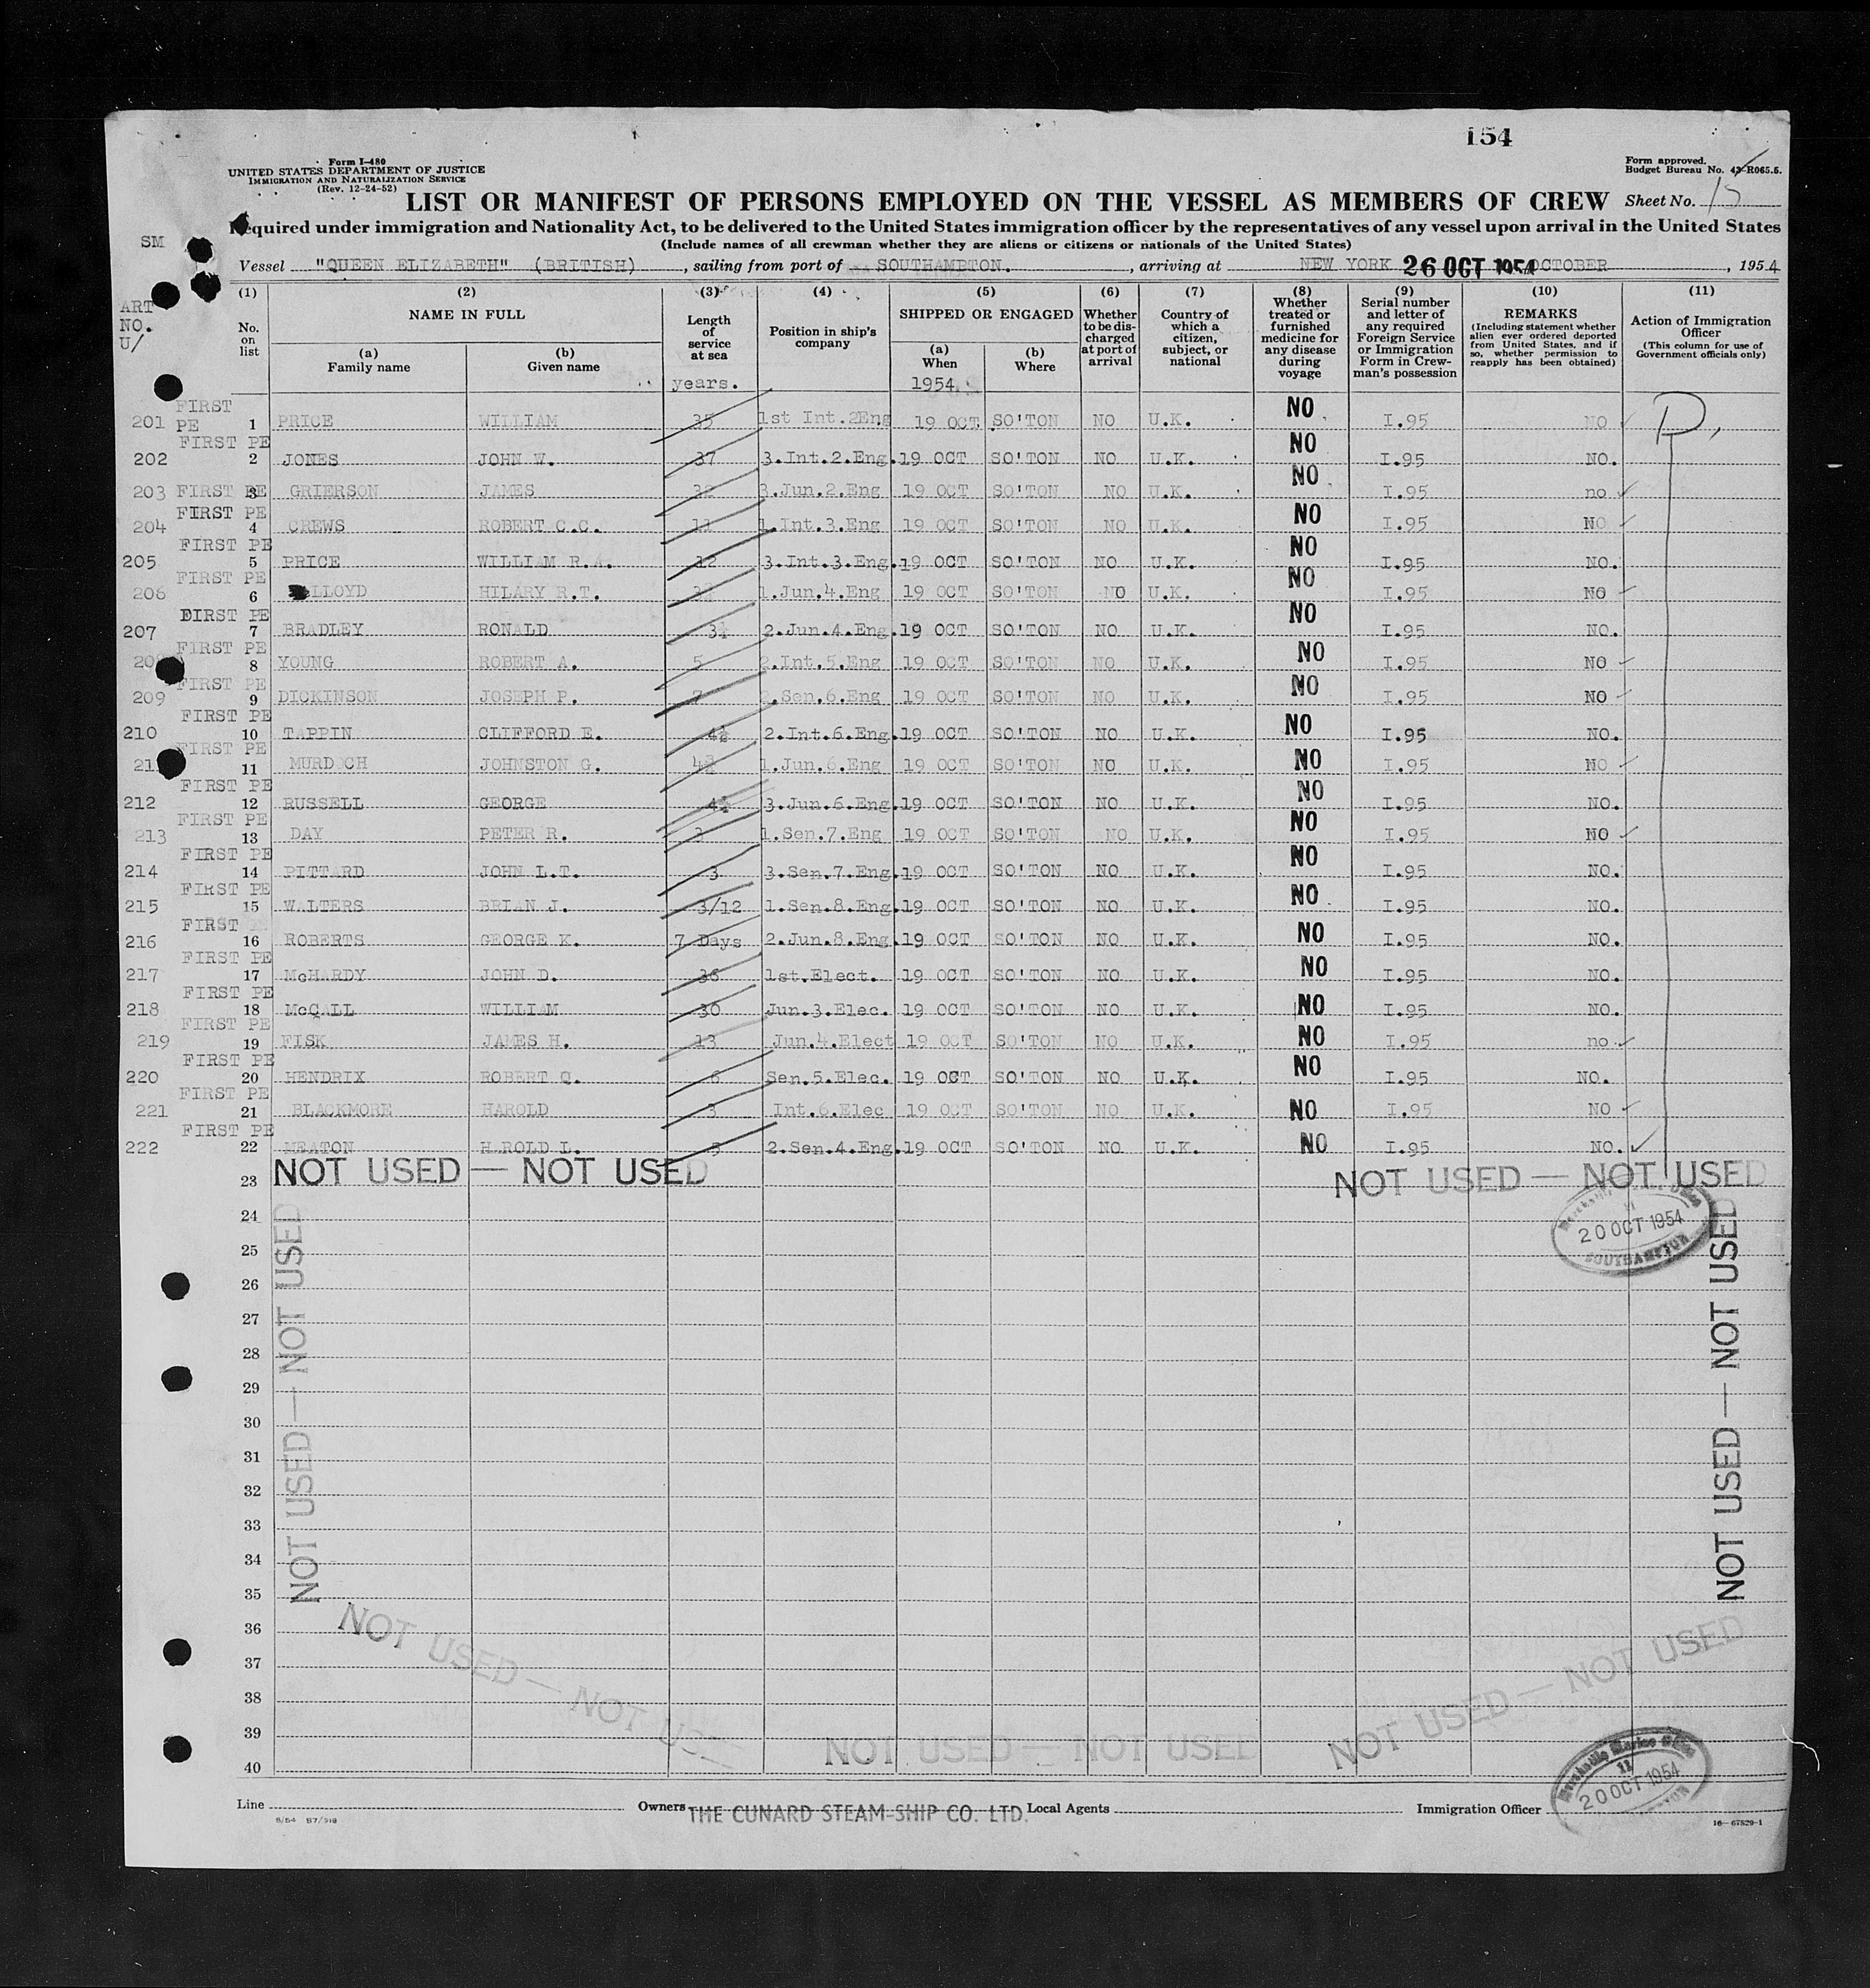 154
Form I-480
UNITED STATES DEPARTMENT OF JUSTICE
IMMIGRATION AND NATURALIZATION SERVICE
(Rev. 12-24-52)
Form approved.
Budget Bureau No. 43-R065.5.
LIST OR MANIFEST OF PERSONS EMPLOYED ON THE VESSEL AS MEMBERS OF CREW Sheet No. 15
Required under immigration and Nationality Act, to be delivered to the United States immigration officer by the representatives of any vessel upon arrival in the United States
(Include names of all crewman whether they are aliens or citizens or nationals of the United States)
SM
Vessel "QUEEN ELIZABETH" (BRITISH), sailing from port of SOUTHAMPTON., arriving at NEW YORK 26 OCT 1954 OCTOBER, 1954
ART
NO.
U/
(1) No. on list
(2) NAME IN FULL
(a) Family name
(b) Given name
(3) Length of service at sea
years.
(4) Position in ship's company
(5) SHIPPED OR ENGAGED
(a) When
1954
(b) Where
(6) Whether to be discharged at port of arrival
(7) Country of which a citizen, subject, or national
(8) Whether treated or furnished medicine for any disease during voyage
(9) Serial number and letter of any required Foreign Service or Immigration Form in Crewman's possession
(10) REMARKS (Including statement whether alien ever ordered deported from United States, and if so, whether permission to reapply has been obtained)
(11) Action of Immigration Officer (This column for use of Government officials only)
201 FIRST PE 1 PRICE WILLIAM 35 1st Int.2Eng 19 OCT SO'TON NO U.K. NO I.95 NO D,
202 FIRST PE 2 JONES JOHN W. 37 3.Int.2.Eng. 19 OCT SO'TON NO U.K. NO I.95 NO.
203 FIRST PE 3 GRIERSON JAMES 3.Jun.2.Eng 19 OCT SO'TON NO U.K. NO I.95 no
204 FIRST PE 4 CREWS ROBERT C.C. 11 1.Int.3.Eng 19 OCT SO'TON NO U.K. NO I.95 NO
205 FIRST PE 5 PRICE WILLIAM R.A. 12 3.Int.3.Eng. 19 OCT SO'TON NO U.K. NO I.95 NO.
206 FIRST PE 6 LLOYD HILARY R.T. 1.Jun.4.Eng 19 OCT SO'TON NO U.K. NO I.95 NO
207 FIRST PE 7 BRADLEY RONALD 3½ 2.Jun.4.Eng. 19 OCT SO'TON NO U.K. NO I.95 NO.
FIRST PE 8 YOUNG ROBERT A. 5 2.Int.5.Eng 19 OCT SO'TON NO U.K. NO I.95 NO
209 FIRST PE 9 DICKINSON JOSEPH P. 7 2.Sen.6.Eng 19 OCT SO'TON NO U.K. NO I.95 NO
210 FIRST PE 10 TAPPIN CLIFFORD E. 4½ 2.Int.6.Eng. 19 OCT SO'TON NO U.K. NO I.95 NO.
FIRST PE 11 MURDOCH JOHNSTON G. 1.Jun.6.Eng 19 OCT SO'TON NO U.K. NO I.95 NO
212 FIRST PE 12 RUSSELL GEORGE 4½ 3.Jun.6.Eng. 19 OCT SO'TON NO U.K. NO I.95 NO.
213 FIRST PE 13 DAY PETER R. 1.Sen.7.Eng 19 OCT SO'TON NO U.K. NO I.95 NO
214 FIRST PE 14 PITTARD JOHN L.T. 3 3.Sen.7.Eng. 19 OCT SO'TON NO U.K. NO I.95 NO.
215 FIRST PE 15 WALTERS BRIAN J. 3/12 1.Sen.8.Eng. 19 OCT SO'TON NO U.K. NO I.95 NO.
216 FIRST 16 ROBERTS GEORGE K. 7 Days 2.Jun.8.Eng. 19 OCT SO'TON NO U.K. NO I.95 NO.
217 FIRST PE 17 McHARDY JOHN D. 36 1st.Elect. 19 OCT SO'TON NO U.K. NO I.95 NO.
218 FIRST PE 18 McCALL WILLIAM 30 Jun.3.Elec. 19 OCT SO'TON NO U.K. NO I.95 NO.
219 FIRST PE 19 FISK JAMES H. 13 Jun.4.Elect 19 OCT SO'TON NO U.K. NO I.95 no
220 FIRST PE 20 HENDRIX ROBERT Q. 6 Sen.5.Elec. 19 OCT SO'TON NO U.K. NO I.95 NO.
221 FIRST PE 21 BLACKMORE HAROLD 3 Int.6.Elec 19 OCT SO'TON NO U.K. NO I.95 NO
222 FIRST PE 22 MEATON HAROLD L. 5 2.Sen.4.Eng. 19 OCT SO'TON NO U.K. NO I.95 NO.
23 NOT USED — NOT USED NOT USED — NOT USED
24
25
26
27
28
29
30
31
32
33
34
35
36
37
38
39
40
NOT USED — NOT USED — NOT USED
NOT USED — NOT USED — NOT USED
20 OCT 1954
SOUTHAMPTON
NOT USED — NOT USED
NOT USED — NOT USED
NOT USED — NOT USED
Mercantile Marine Office
11
20 OCT 1954
Line Owners THE CUNARD STEAM-SHIP CO. LTD. Local Agents Immigration Officer
16—67529-1